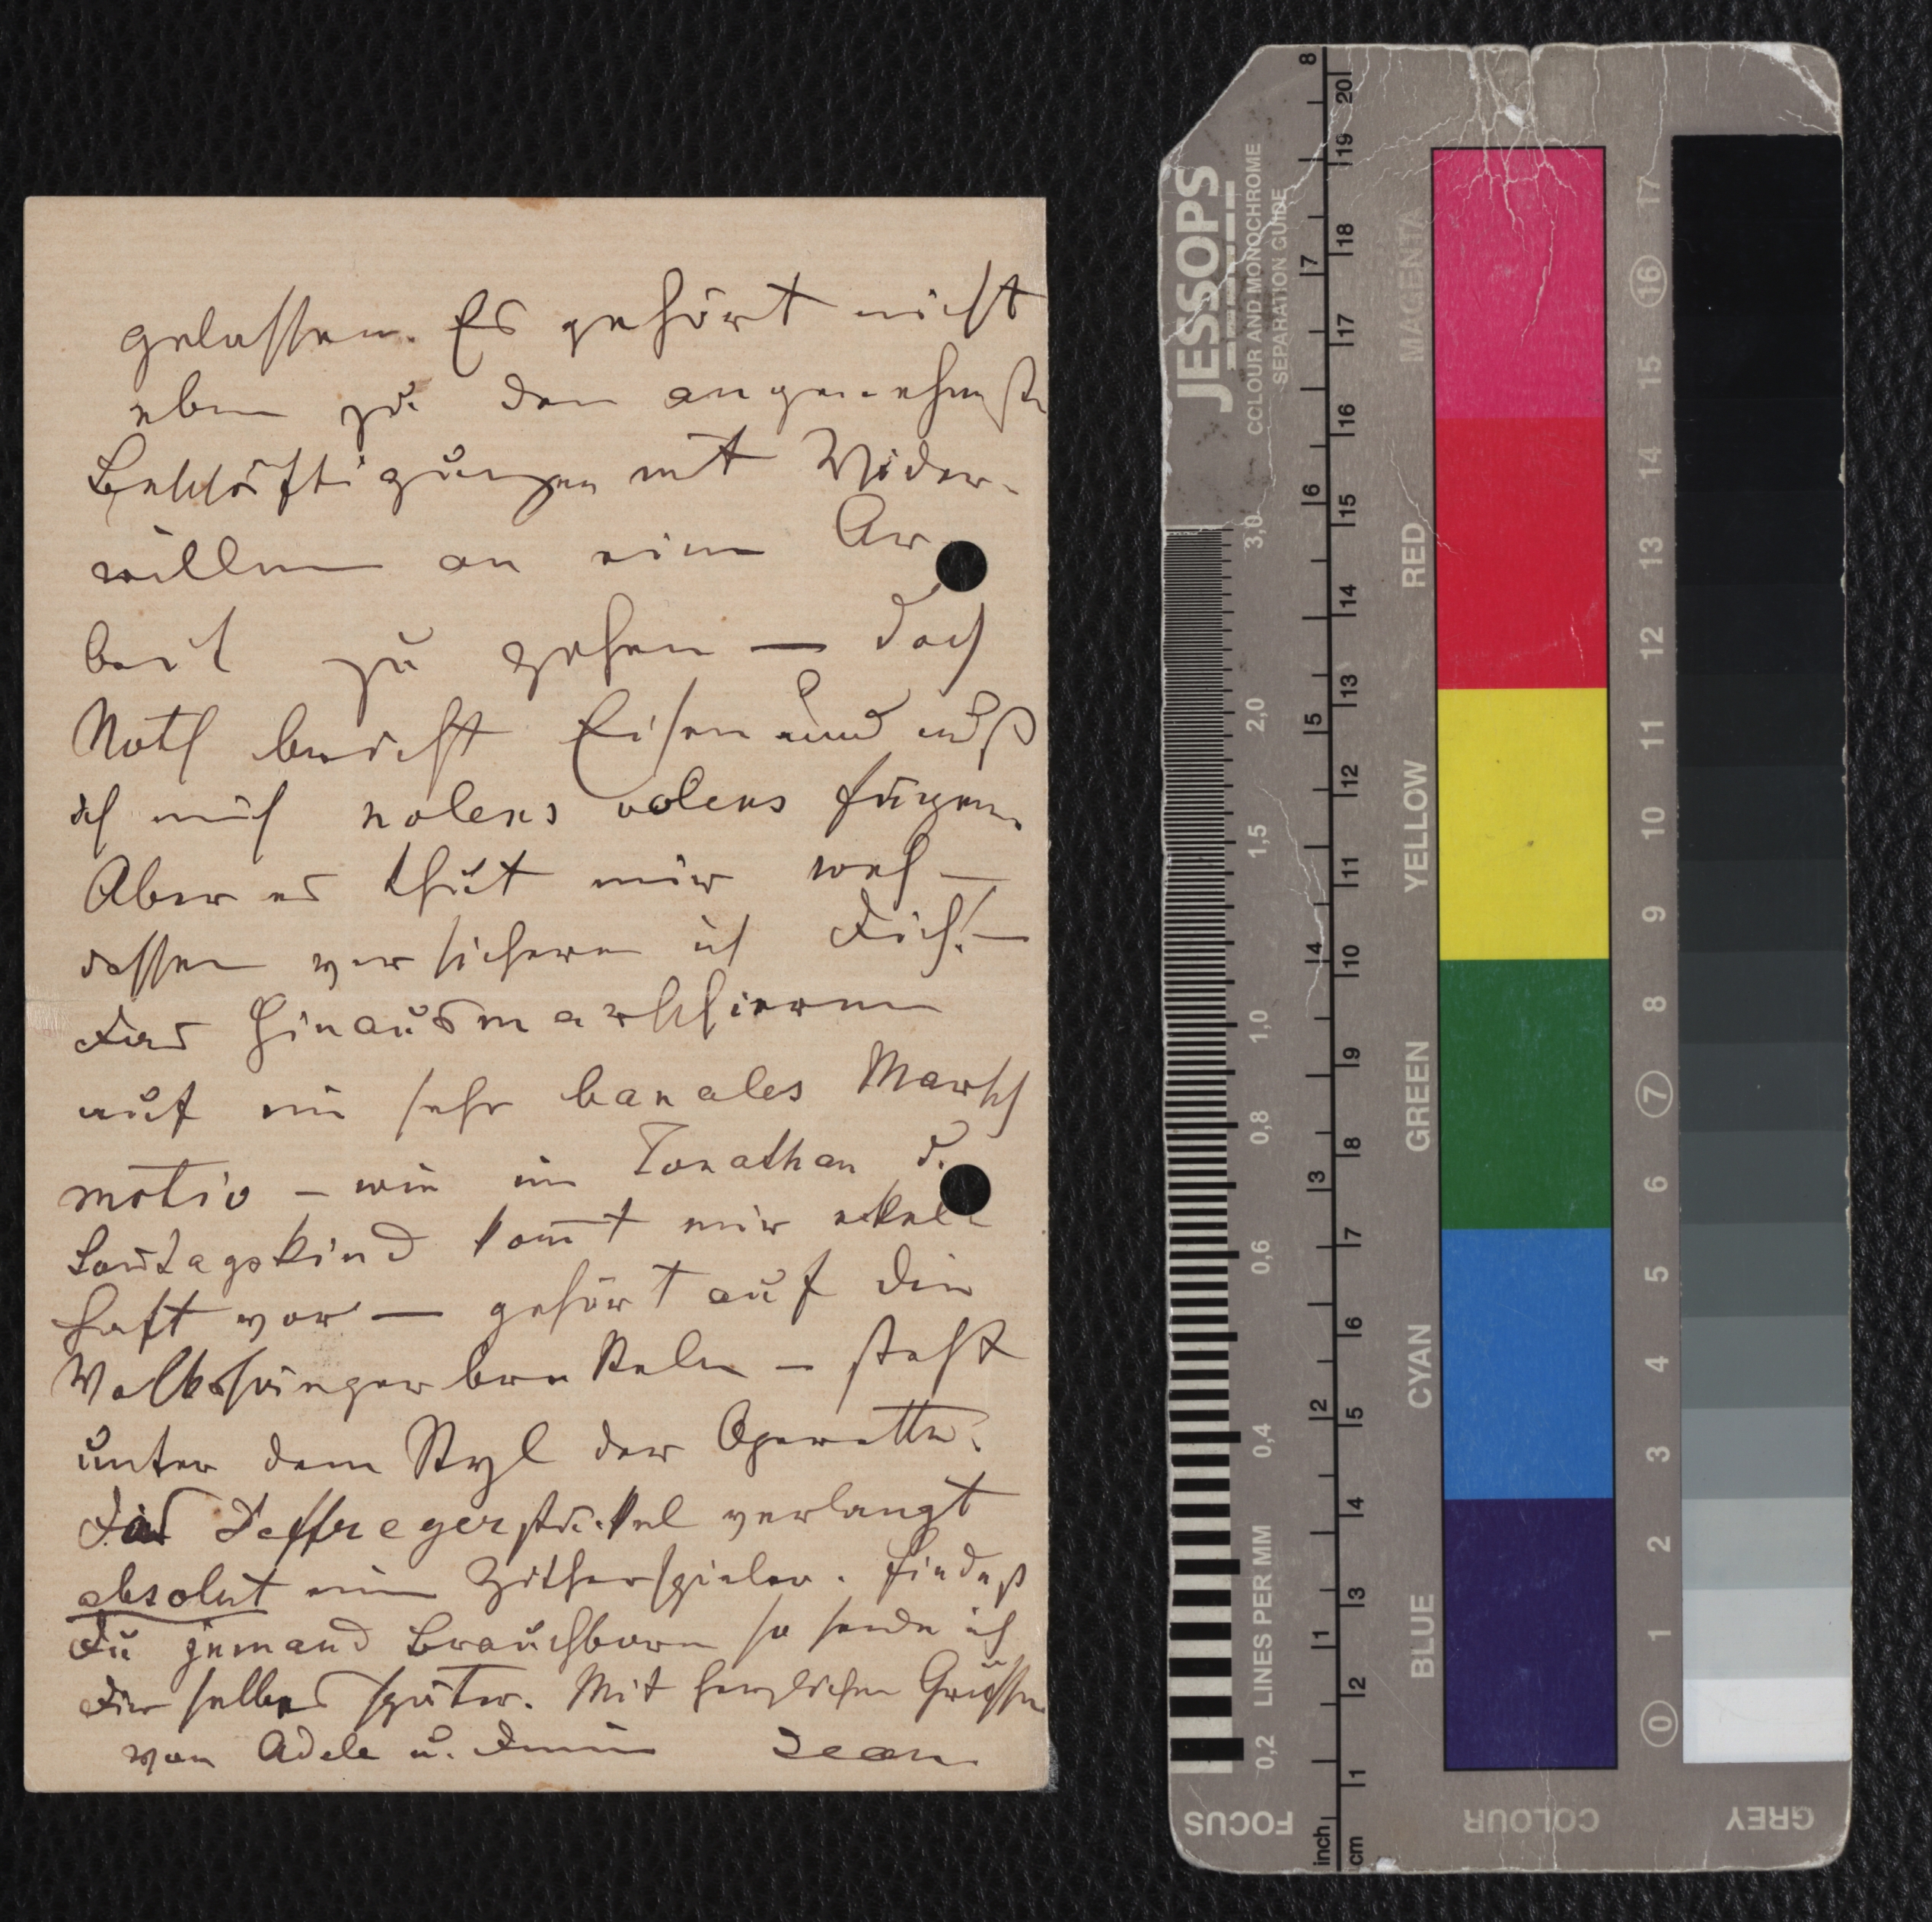 gelassen. Es gehört nicht
eben zu den angenehmst
Beschäftigungen mit Wider-
willen an eine Ar
beit zu gehen — doch
Noth bricht Eisen und muß
ich mich nolens volens fügen.
Aber es thut mir weh —
dessen versichere ich Dich! —
Das Hinausmarschieren
auf ein sehr banales Marsch
motiv — wie im Jonathan d.
Sontagskind kom̅t mir ekel
haft vor — gehört auf die
Volkssängerbretteln — steht
unter dem Styl der Operette.
Das Deffregerstückel verlangt
absolut einen Zitherspieler. Findest
Du jemand Brauchbaren so sende ich
Dir selbes später. Mit herzlichen Grüssen
von Adele u. Deinen Jean
JESSOPS
COLOUR AND MONOCHROME
SEPARATION GUIDE
3,0 2,0 1,5 1,0 0,8 0,6 0,4 0,2 LINES PER MM
FOCUS
8 7 6 5 4 3 2 1 inch
20 19 18 17 16 15 14 13 12 11 10 9 8 7 6 5 4 3 2 1 cm
MAGENTA RED YELLOW GREEN CYAN BLUE
COLOUR
17 16 15 14 13 12 11 10 9 8 7 6 5 4 3 2 1 0
GREY